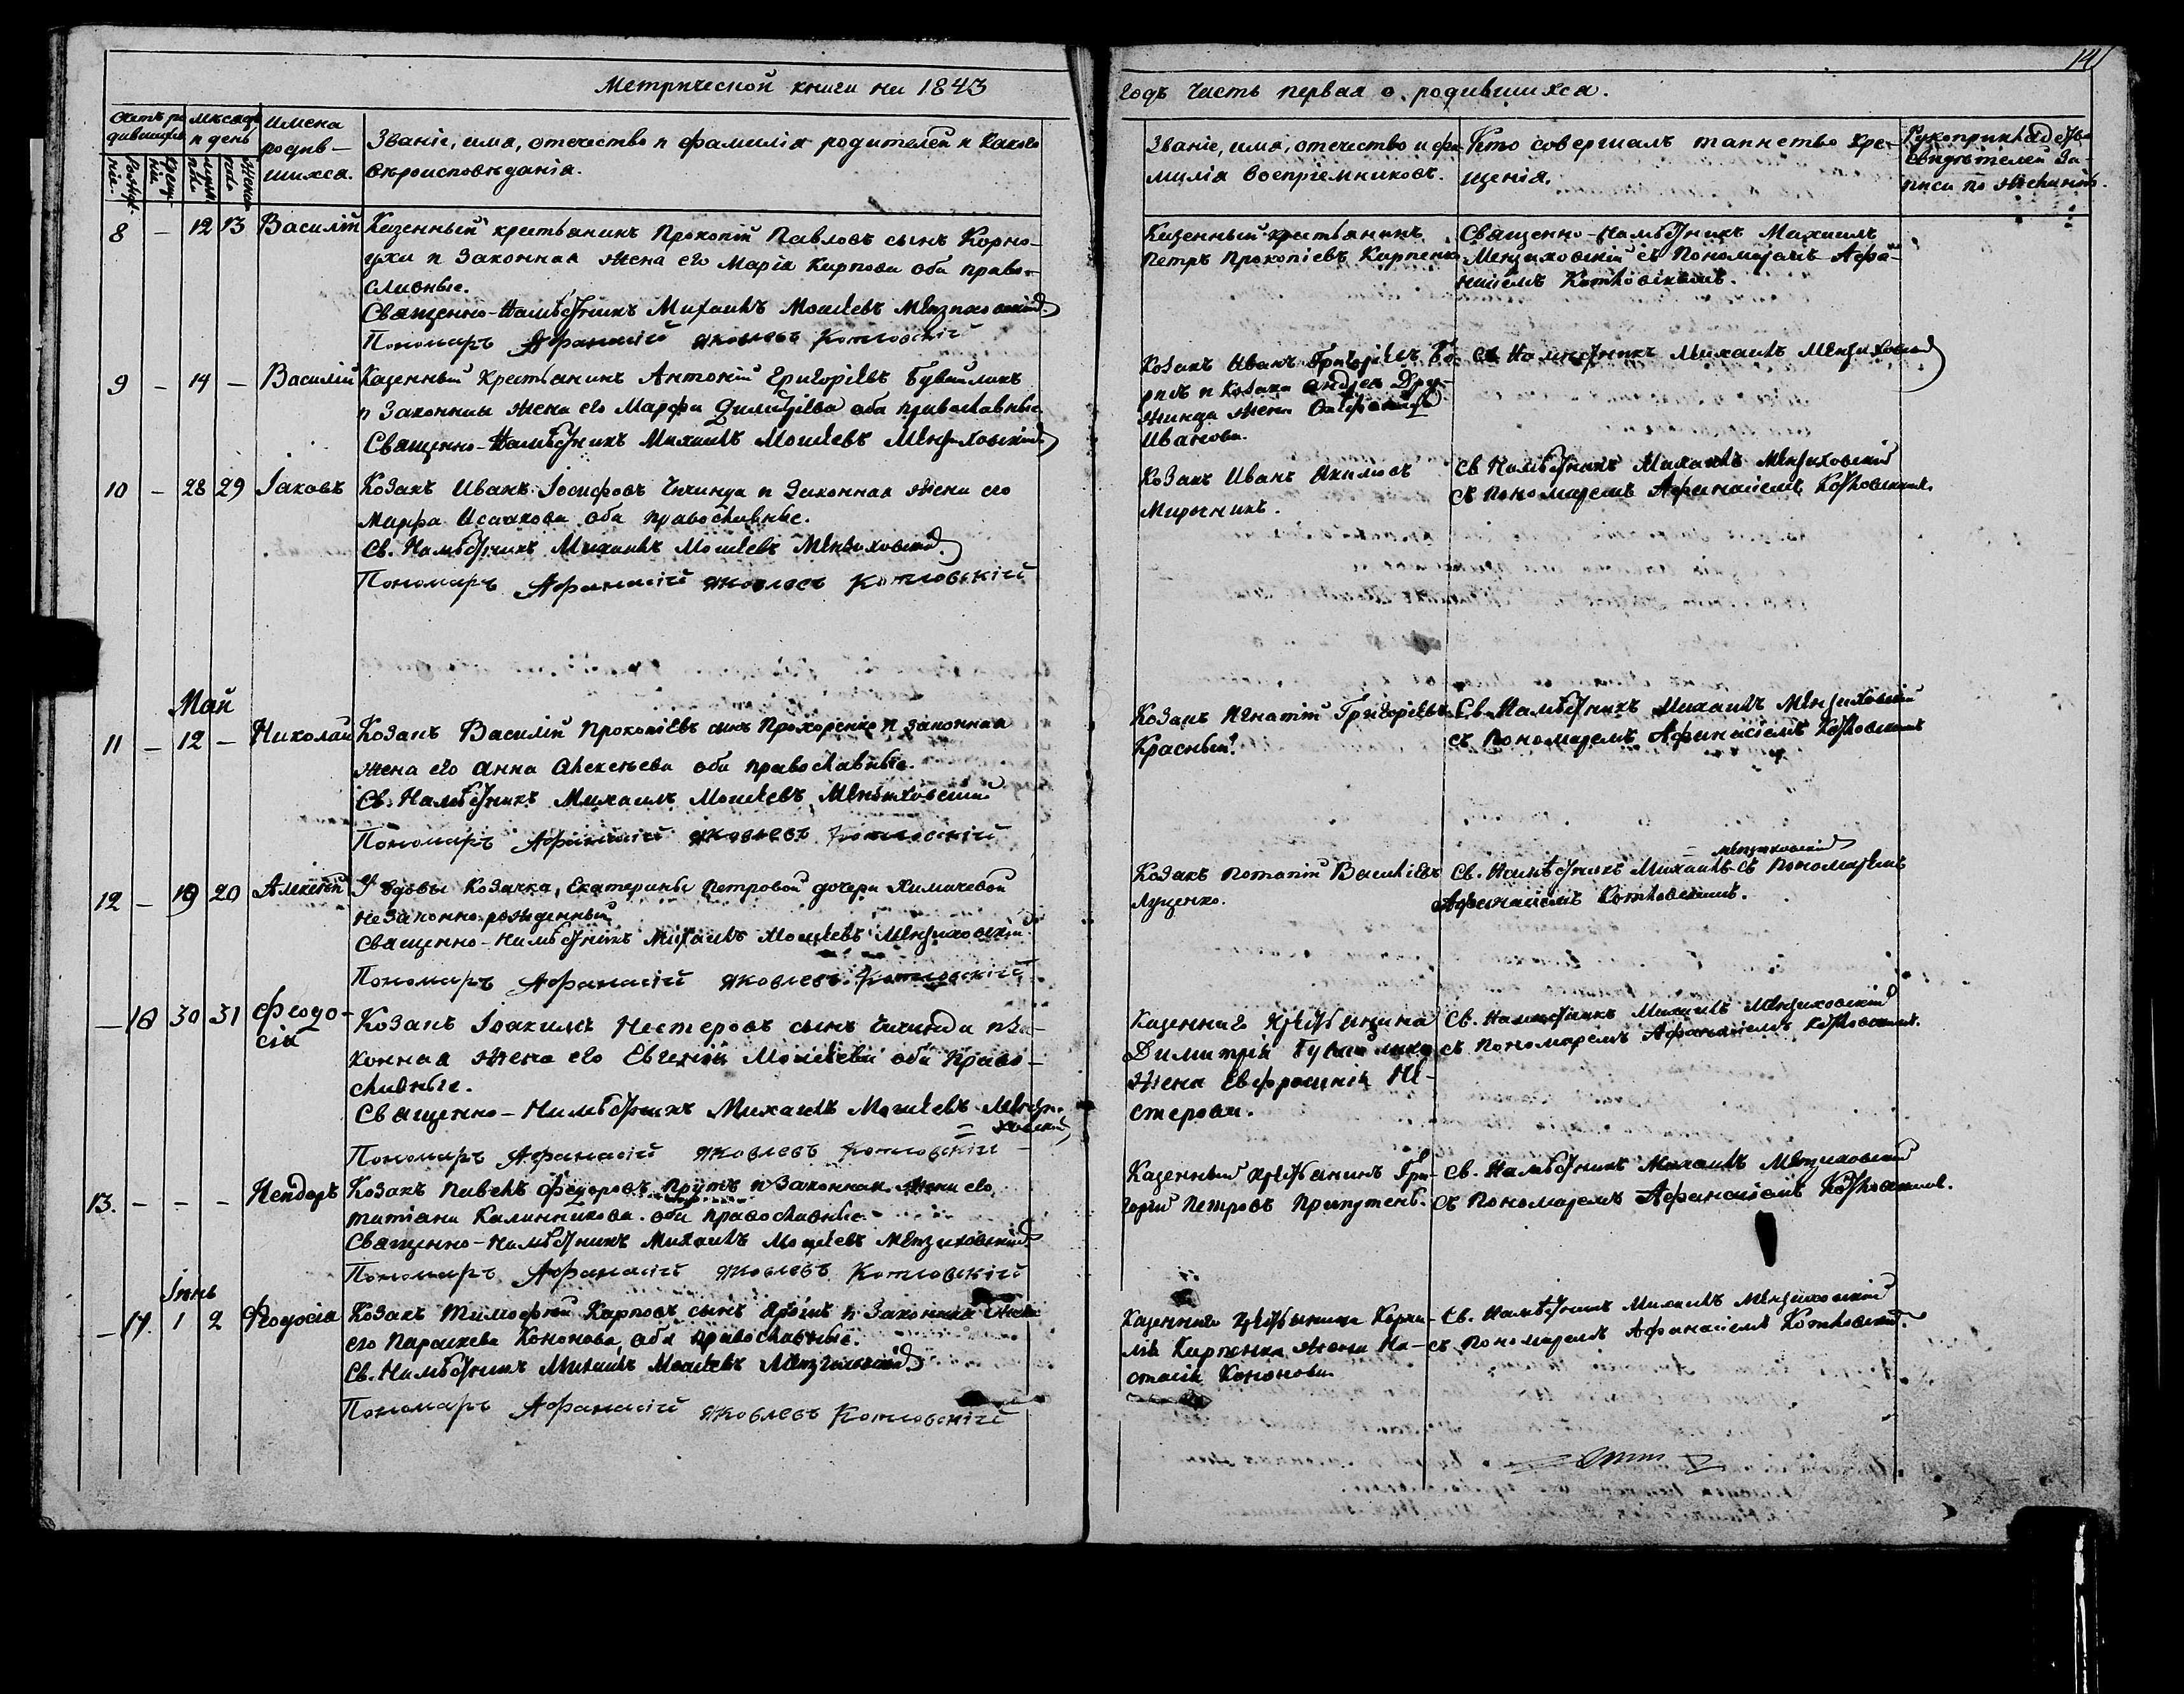 14
Метрической книги на 1843
годъ часть первая о родившихся.
Имена
родив-
шихся.
Званіе, имя, отечество и фамилія родителей и какого
вѣроисповѣданія.
Званіе, имя, отечество и фа-
милія воспріемниковъ.
Кто совершалъ таинство кре-
щенія.
Рукоприкладство
свидѣтелей за-
писи по желанію.
8 – 12 13 Василій Казенный крестьянинъ Прокопій Павловъ сынъ Корно-
ухи и законная жена его Марія Карпова оба право-
славные.
Священно-Намѣстникъ Михаилъ Моисеевъ Мензиховскій
Пономаръ Афанасій Яковлевъ Котловскій
Казенный крестьянинъ
Петръ Прокопіевъ Карпенко
Священно-Намѣстникъ Михаилъ
Мензиховскій съ Пономаремъ Афа-
насіемъ Котловскимъ.
9 – 14 – Василій Казенный крестьянинъ Антоній Григоріевъ
и законная жена его Марфа Димитріева оба православные
Священно-Намѣстникъ Михаилъ Моисеевъ Мензиховскій
Козакъ Иванъ Григоріевъ
и козака Андрея
жена
Иванова.
Св. Намѣстникъ Михаилъ Мензиховскій
10 – 28 29 Іаковъ Козакъ Иванъ Іосифовъ Чичинда и законная жена его
Марфа Исаакова оба православные.
Св. Намѣстникъ Михаилъ Моисеевъ Мензиховскій
Пономаръ Афанасій Яковлевъ Котловскій
Козакъ Иванъ Акимовъ
Мирочникъ.
Св Намѣстникъ Михаилъ Мензиховскій
съ пономаремъ Афанасіемъ Котловскимъ.
Май
11 – 12 – Николай Козакъ Василій Прокопіевъ сынъ Прохоренко и законная
жена его Анна Алексѣева оба православные.
Св. Намѣстникъ Михаилъ Моисеевъ Мензиховскій
Пономаръ Афанасій Яковлевъ Котловскій
Козакъ Игнатій Григоріевъ
Красный.
Св. Намѣстникъ Михаилъ Мензиховскій
съ Пономаремъ Афанасіемъ Котловскимъ
12 – 19 20 Алексѣй У вдовы козачка, Екатерины Петровой дочери Химичевой
незаконно-рожденный
Священно-Намѣстникъ Михаилъ Моисеевъ Мензиховскій
Пономаръ Афанасій Яковлевъ Котловскій
Козакъ Потапій Василіевъ
Луценко.
Мензиховскій
Св. Намѣстникъ Михаилъ съ Пономаремъ
Афанасіемъ Котловскимъ.
– 30 31 Феодо-
сія
Козакъ Іоакимъ Нестеровъ сынъ Чичинда и за-
конная жена его Евгенія Моисѣева оба право-
славные.
Священно-Намѣстникъ Михаилъ Моисеевъ Мензи-
ховскій
Пономаръ Афанасій Яковлевъ Котловскій
Казеннаго крестьянина
Димитрія
жена Евфросинія Не-
стерова.
Св. Намѣстникъ Михаилъ Мензиховскій
съ Пономаремъ Афанасіемъ Котловскимъ.
13. – – – Козакъ Павелъ Федоровъ Прутъ и законная жена его
Татіана Калинникова оба православные
Священно-Намѣстникъ Михаилъ Моисеевъ Мензиховскій
Пономаръ Афанасій Яковлевъ Котловскій
Казенный крестьянинъ Гри-
горій Петровъ Припутень.
Св. Намѣстникъ Михаилъ Мензиховскій
съ Пономаремъ Афанасіемъ Котловскимъ.
Іюнь
– 1 2 Феодосія Козакъ Тимофей Карповъ сынъ Ярошъ и законная жена
его Параскева Кононова, оба православные.
Св. Намѣстникъ Михаилъ Моисеевъ Мензиховскій
Пономаръ Афанасій Яковлевъ Котловскій
Казеннаго крестьянина Корни-
лія Карпенка жена На-
стасія Кононова
Св. Намѣстникъ Михаилъ Мензиховскій
съ пономаремъ Афанасіемъ Котловскимъ.